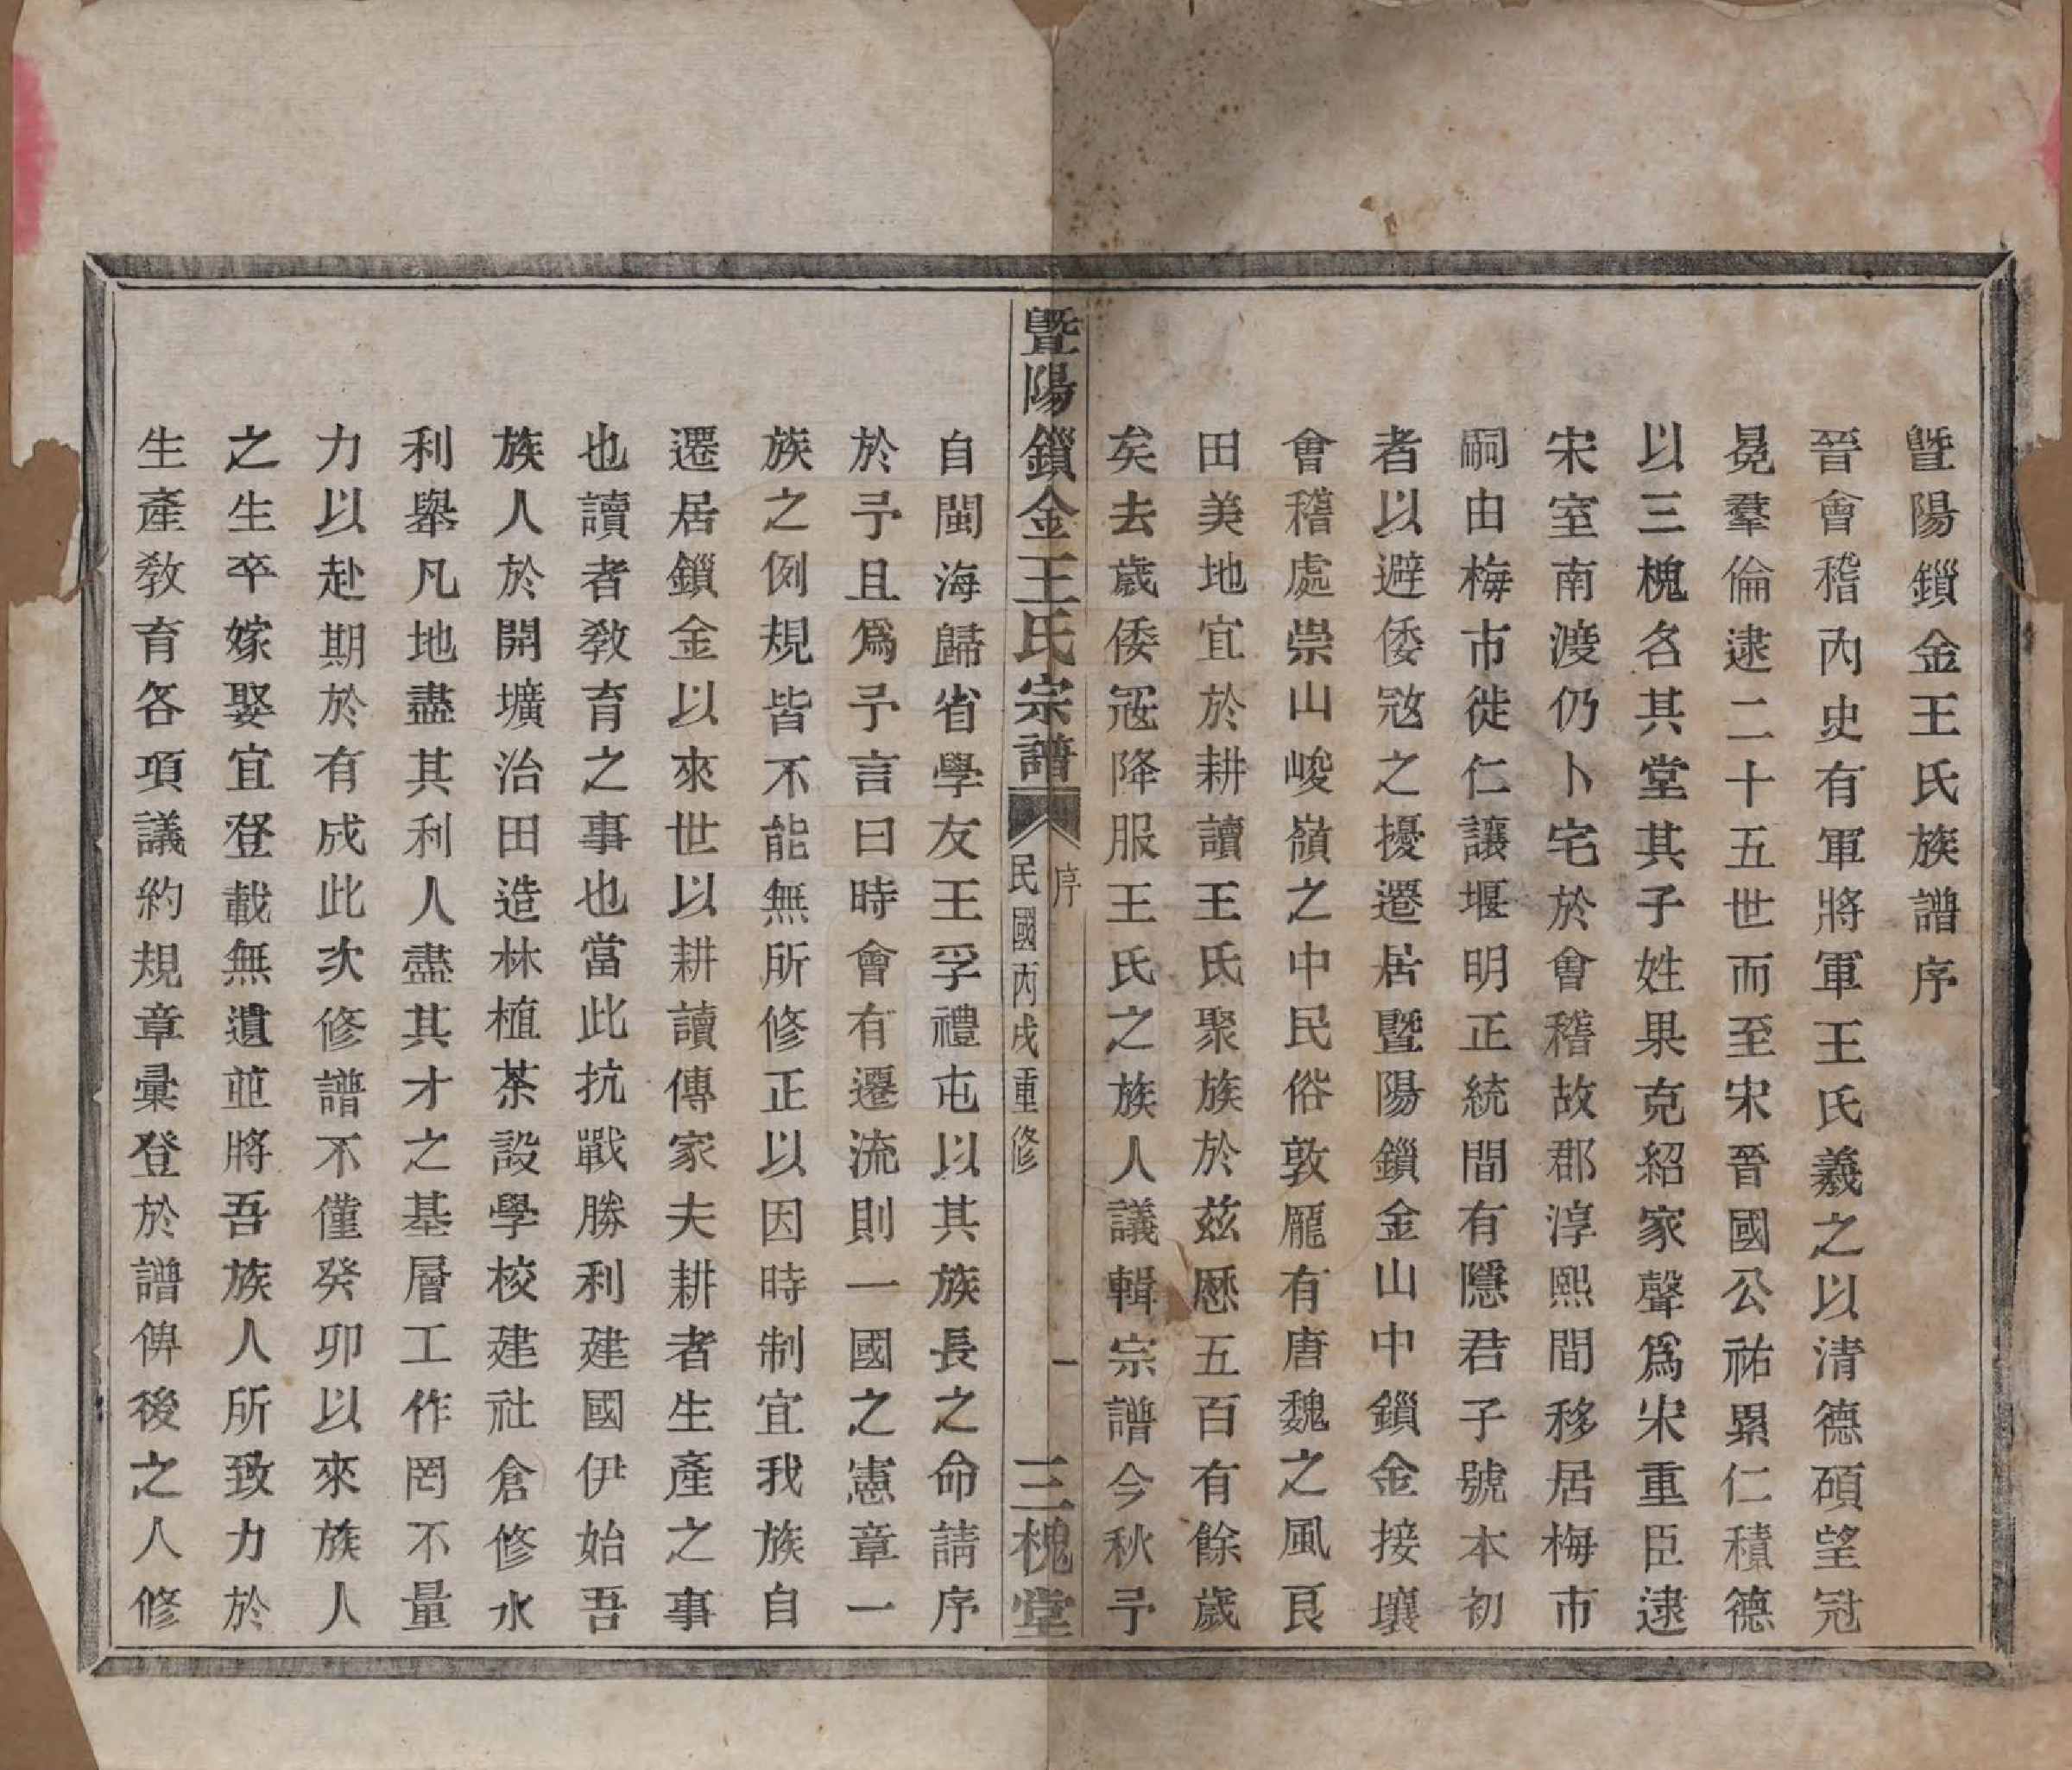 暨陽鎖金王氏族譜序
晉會稽內史有軍將軍王氏羲之以清德碩望冠
冕羣倫逮二十五世而至宋晉國公祐累仁積德
以三槐名其堂其子姓果克紹家聲爲宋重臣逮
宋室南渡仍卜宅於會稽故郡淳熙間移居梅市
嗣由梅市徙仁讓堰明正統間有隱君子號本初
者以避倭寇之擾遷居暨陽鎖金山中鎖金接壤
會稽處崇山峻嶺之中民俗敦龐有唐魏之風艮
田美地宜於耕讀王氏聚族於茲歷五百有餘歲
矣去歲倭寇降服王氏之族人議輯宗譜今秋予
暨陽鎖金王氏宗譜
序
民國丙戌重修
一
三槐堂
自閩海歸省學友王孚禮屯以其族長之命請序
於予且爲予言曰時會有遷流則一國之憲章一
族之例規皆不能無所修正以因時制宜我族自
遷居鎖金以來世以耕讀傳家夫耕者生產之事
也讀者教育之事也當此抗戰勝利建國伊始吾
族人於開壙治田造林植茶設學校建社倉修水
利舉凡地盡其利人盡其才之基層工作罔不量
力以赴期於有成此次修譜不僅癸卯以來族人
之生卒嫁娶宜登載無遺並將吾族人所致力於
生產教育各項議約規章彙登於譜俾後之人修